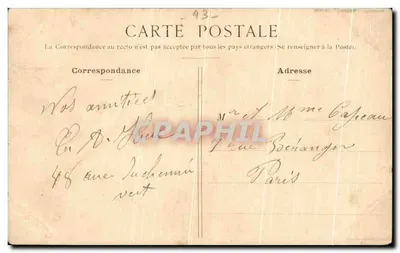 93-
CARTE POSTALE
La Correspondance au recto n'est pas acceptée par tous les pays étrangers (Se renseigner à la Poste).
Correspondance
Adresse
Nos amitiés
48 rue du chemin
vert
Mr et Mme Capeau
1 rue Béranger
Paris
CPAPHIL